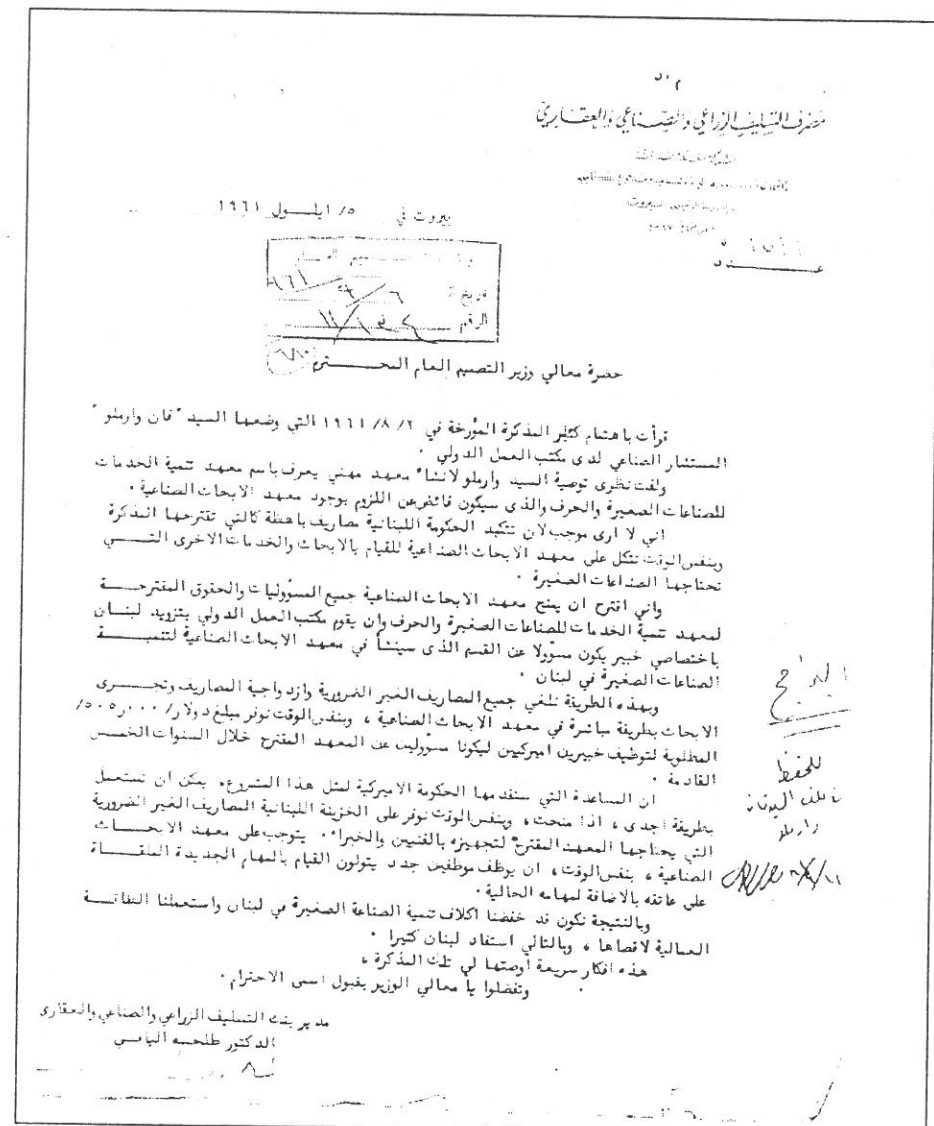 م.د
مصرف التسليف الزراعي والصناعي والعقاري
بيروت في ٥/ ايلـــول ١٩٦١
عـــدد
تاريخ
الرقم
حضرة معالي وزير التصميم العام المحـــــترم
قرأت باهتمام كثير المذكرة المؤرخة في ٢/ ٨/ ١٩٦١ التي وضعها السيد "فان وارملو"
المستشار الصناعي لدى مكتب العمل الدولي .
ولفت نظرى توصية السيد وارملو لانشاء معهد مهني يعرف باسم معهد تنمية الخدمات
للصناعات الصغيرة والحرف والذى سيكون فائض عن اللزوم بوجود معهد الابحاث الصناعية .
اني لا ارى موجب لان تتكبد الحكومة اللبنانية مصاريف باهظة كالتي تقترحها المذكرة
وبنفس الوقت نتكل على معهد الابحاث الصناعية للقيام بالابحاث والخدمات الاخرى التـــي
تحتاجها الصناعات الصغيرة .
واني اقترح ان يمنح معهد الابحاث الصناعية جميع المسؤوليات والحقوق المقترحـــة
لمعهد تنمية الخدمات للصناعات الصغيرة والحرف وان يقوم مكتب العمل الدولي بتزويد لبنـــان
باختصاصي خبير يكون مسوولا عن القسم الذى سينشأ في معهد الابحاث الصناعية لتنميـــة
الصناعات الصغيرة في لبنان .
وبهذه الطريقة نلغي جميع المصاريف الغير الضرورية وازدواجية المصاريف وتجـــرى
الابحاث بطريقة مباشرة في معهد الابحاث الصناعية ، وبنفس الوقت نوفر مبلغ دولار/
المطلوبة لتوظيف خبيرين اميركيين ليكونا مسؤولين عن المعهد المقترح خلال السنوات الخمس
القادمة .
ان المساعدة التي ستقدمها الحكومة الاميركية لمثل هذا المشروع، يمكن ان تستعمل
بطريقة اجدى ، اذا منحت، وبنفس الوقت نوفر على الخزينة اللبنانية المصاريف الغير الضرورية
التي يحتاجها المعهد المقترح لتجهيزه بالفنيين والخبراء . يتوجب على معهد الابحـــاث
الصناعية ، بنفس الوقت، ان يوظف موظفين جدد يتولون القيام بالمهام الجديدة الملقـــاة
على عاتقه بالاضافة لمهامه الحالية .
وبالنتيجة نكون قد خفضنا اكلاف تنمية الصناعة الصغيرة في لبنان واستعملنا الطاقـــة
العمالية لاقصاها ، وبالتالي استفاد لبنان كثيرا .
هذه افكار سريعة اوصتها لي تلك المذكرة ،
وتفضلوا يا معالي الوزير بقبول اسمى الاحترام .
للحفظ
وارملو
مدير بنك التسليف الزراعي والصناعي والعقارى
الدكتور طلحـــه اليافـــي